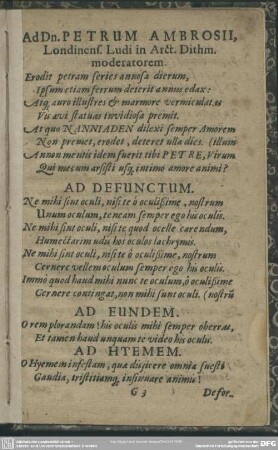 Ad Dn. PETRUM AMBROSII,
Londinens. Ludi in Arct. Dithm.
moderatorem.
Erodit petram series annosa dierum,
Ipsum etiam ferrum deterit annus edax:
Atq, auro illustres & marmore vermiculatas
Vis ævi statuas invidiosa premit.
At quo NANNIADEN dilexi semper Amorem
Non premet, erodet, deteret ulla dies. (illum
Annon mentis idem fuerit tibi PETRE, Virum
Qui mecum arsisti usq, intimo amore animi?
AD DEFUNCTUM.
Ne mihi sint oculi, nisi te ô oculißime, nostrum
Unum oculum, teneam semper ego his oculis.
Ne mihi sint oculi, nisi te quod ocelle carendum,
Humectarim udu hos oculos lachrymis.
Ne mihi sint oculi, nisi te ô oculißime, nostrum
Cernere vellem oculum semper ego his oculis.
Immò quod haud mihi nunc te oculum, ô oculißime
Cernere contingat, non mihi sunt oculi. (nostrũ
AD EUNDEM.
O rem plorandam! his oculis mihi semper oberras,
Et tamen haud unquam te video his oculis.
AD HYEMEM.
O Hyemem infestam, quæ disjicere omnia suesti
Gaudia, tristitiamq, insinuare animis!
G 3
Defor-